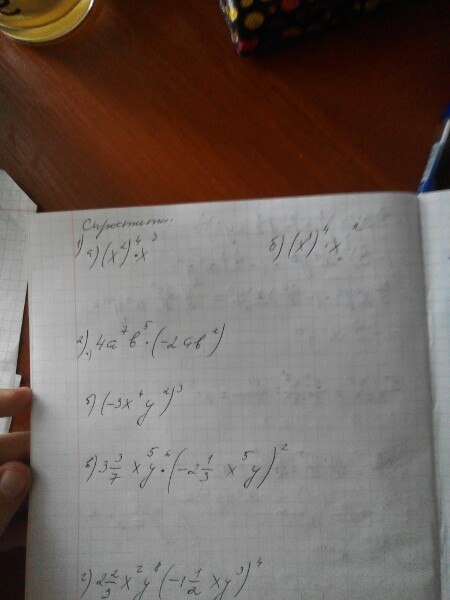 Спростити:
1) а) (x²)⁴·x³ б) (x³)⁴·x²
2) а) 4a⁷b⁵·(-2ab²)
б) (-3x⁴y²)³
в) 3 3/7 x⁵y⁶·(-2 1/3 x⁵y)²
г) 2 2/3 x²y⁸(-1 1/2 xy³)⁴